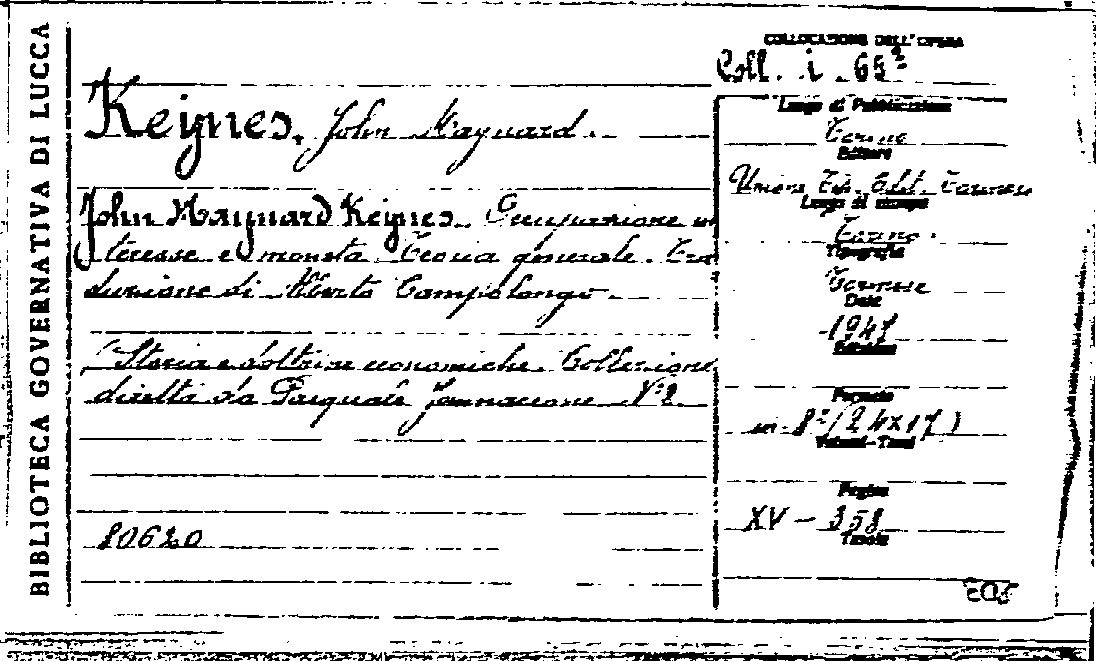 BIBLIOTECA GOVERNATIVA DI LUCCA
COLLOCAZIONE DELL'OPERA
Coll. i. 65²
Keynes, John Maynard.
John Maynard Keynes. Occupazione in
teresse e moneta Teoria generale. Tra
duzione di Alberto Campolongo.
(Storia e dottrine economiche. Collezione
diretta da Pasquale Jannaccone N° 2
80620
Luogo di Pubblicazione
Torino
Editore
Unione Tip. Edit. Torinese
Luogo di stampa
Torino.
Tipografia
Torinese
Data
1947
Formato
in-8°(24x17)
Volumi-Tomi
Pagine
XV-358
Tavole